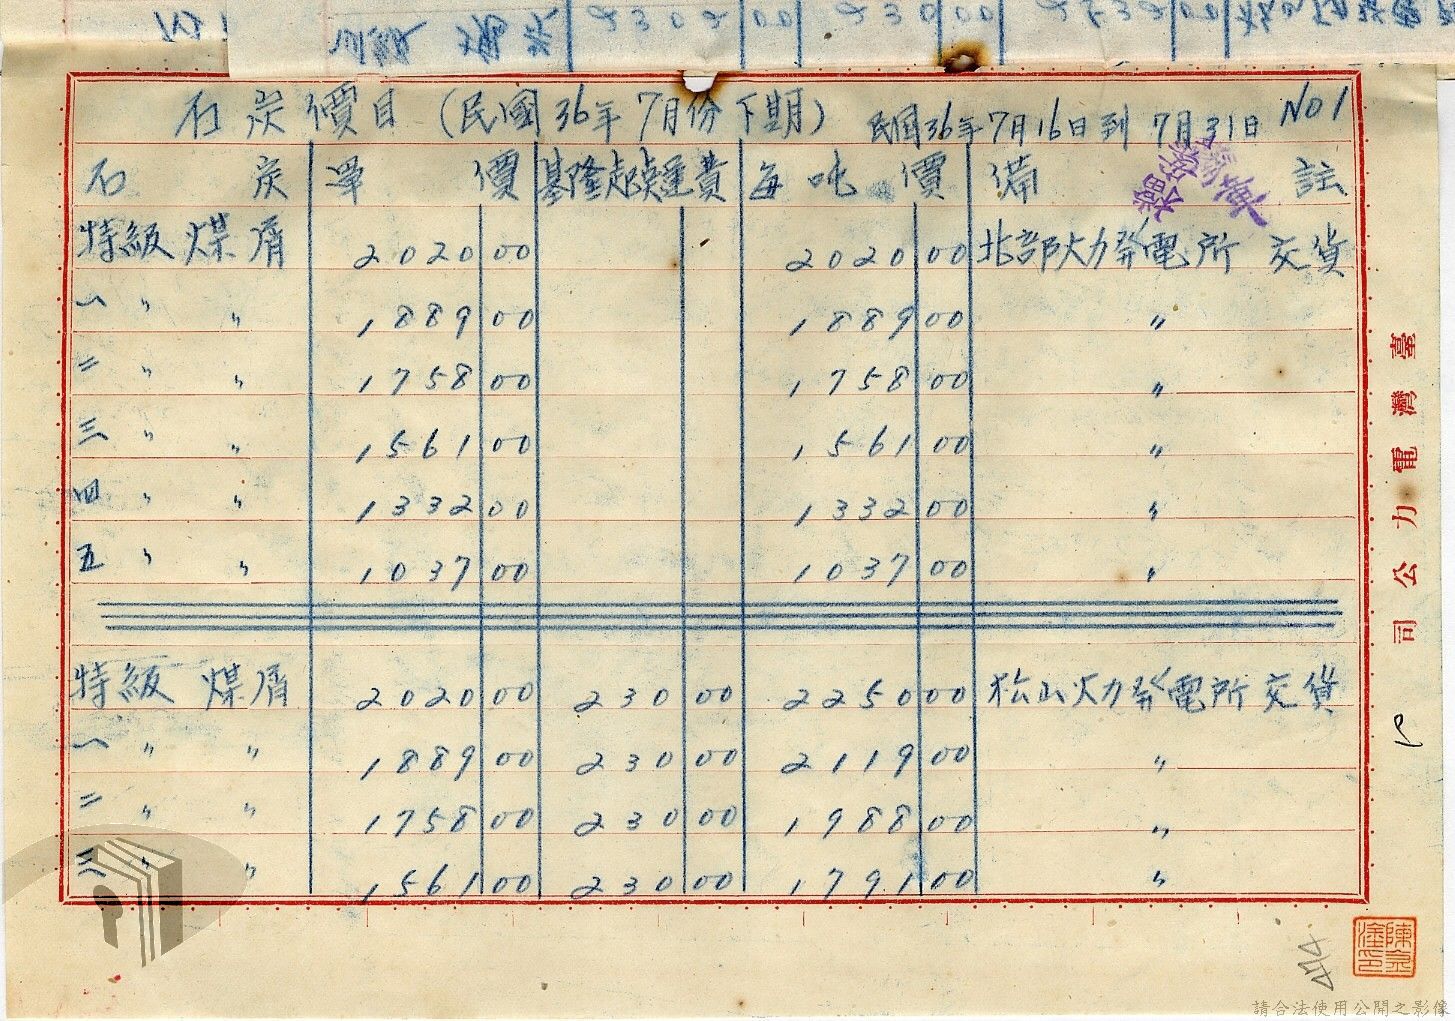 石炭價目（民國36年7月份下期） 民國36年7月16日到7月31日 NO1
石炭 單價 基隆起点運賃 每吨價 備註
特級煤屑 2020 00 2020 00 北部火力発電所 交貨
一 〃 〃 1889 00 1889 00 〃
二 〃 〃 1758 00 1758 00 〃
三 〃 〃 1561 00 1561 00 〃
四 〃 〃 1332 00 1332 00 〃
五 〃 〃 1037 00 1037 00 〃
特級煤屑 2020 00 230 00 2250 00 松山火力発電所 交貨
一 〃 〃 1889 00 230 00 2119 00 〃
二 〃 〃 1758 00 230 00 1988 00 〃
三 〃 〃 1561 00 230 00 1791 00 〃
臺灣電力公司
請合法使用公開之影像